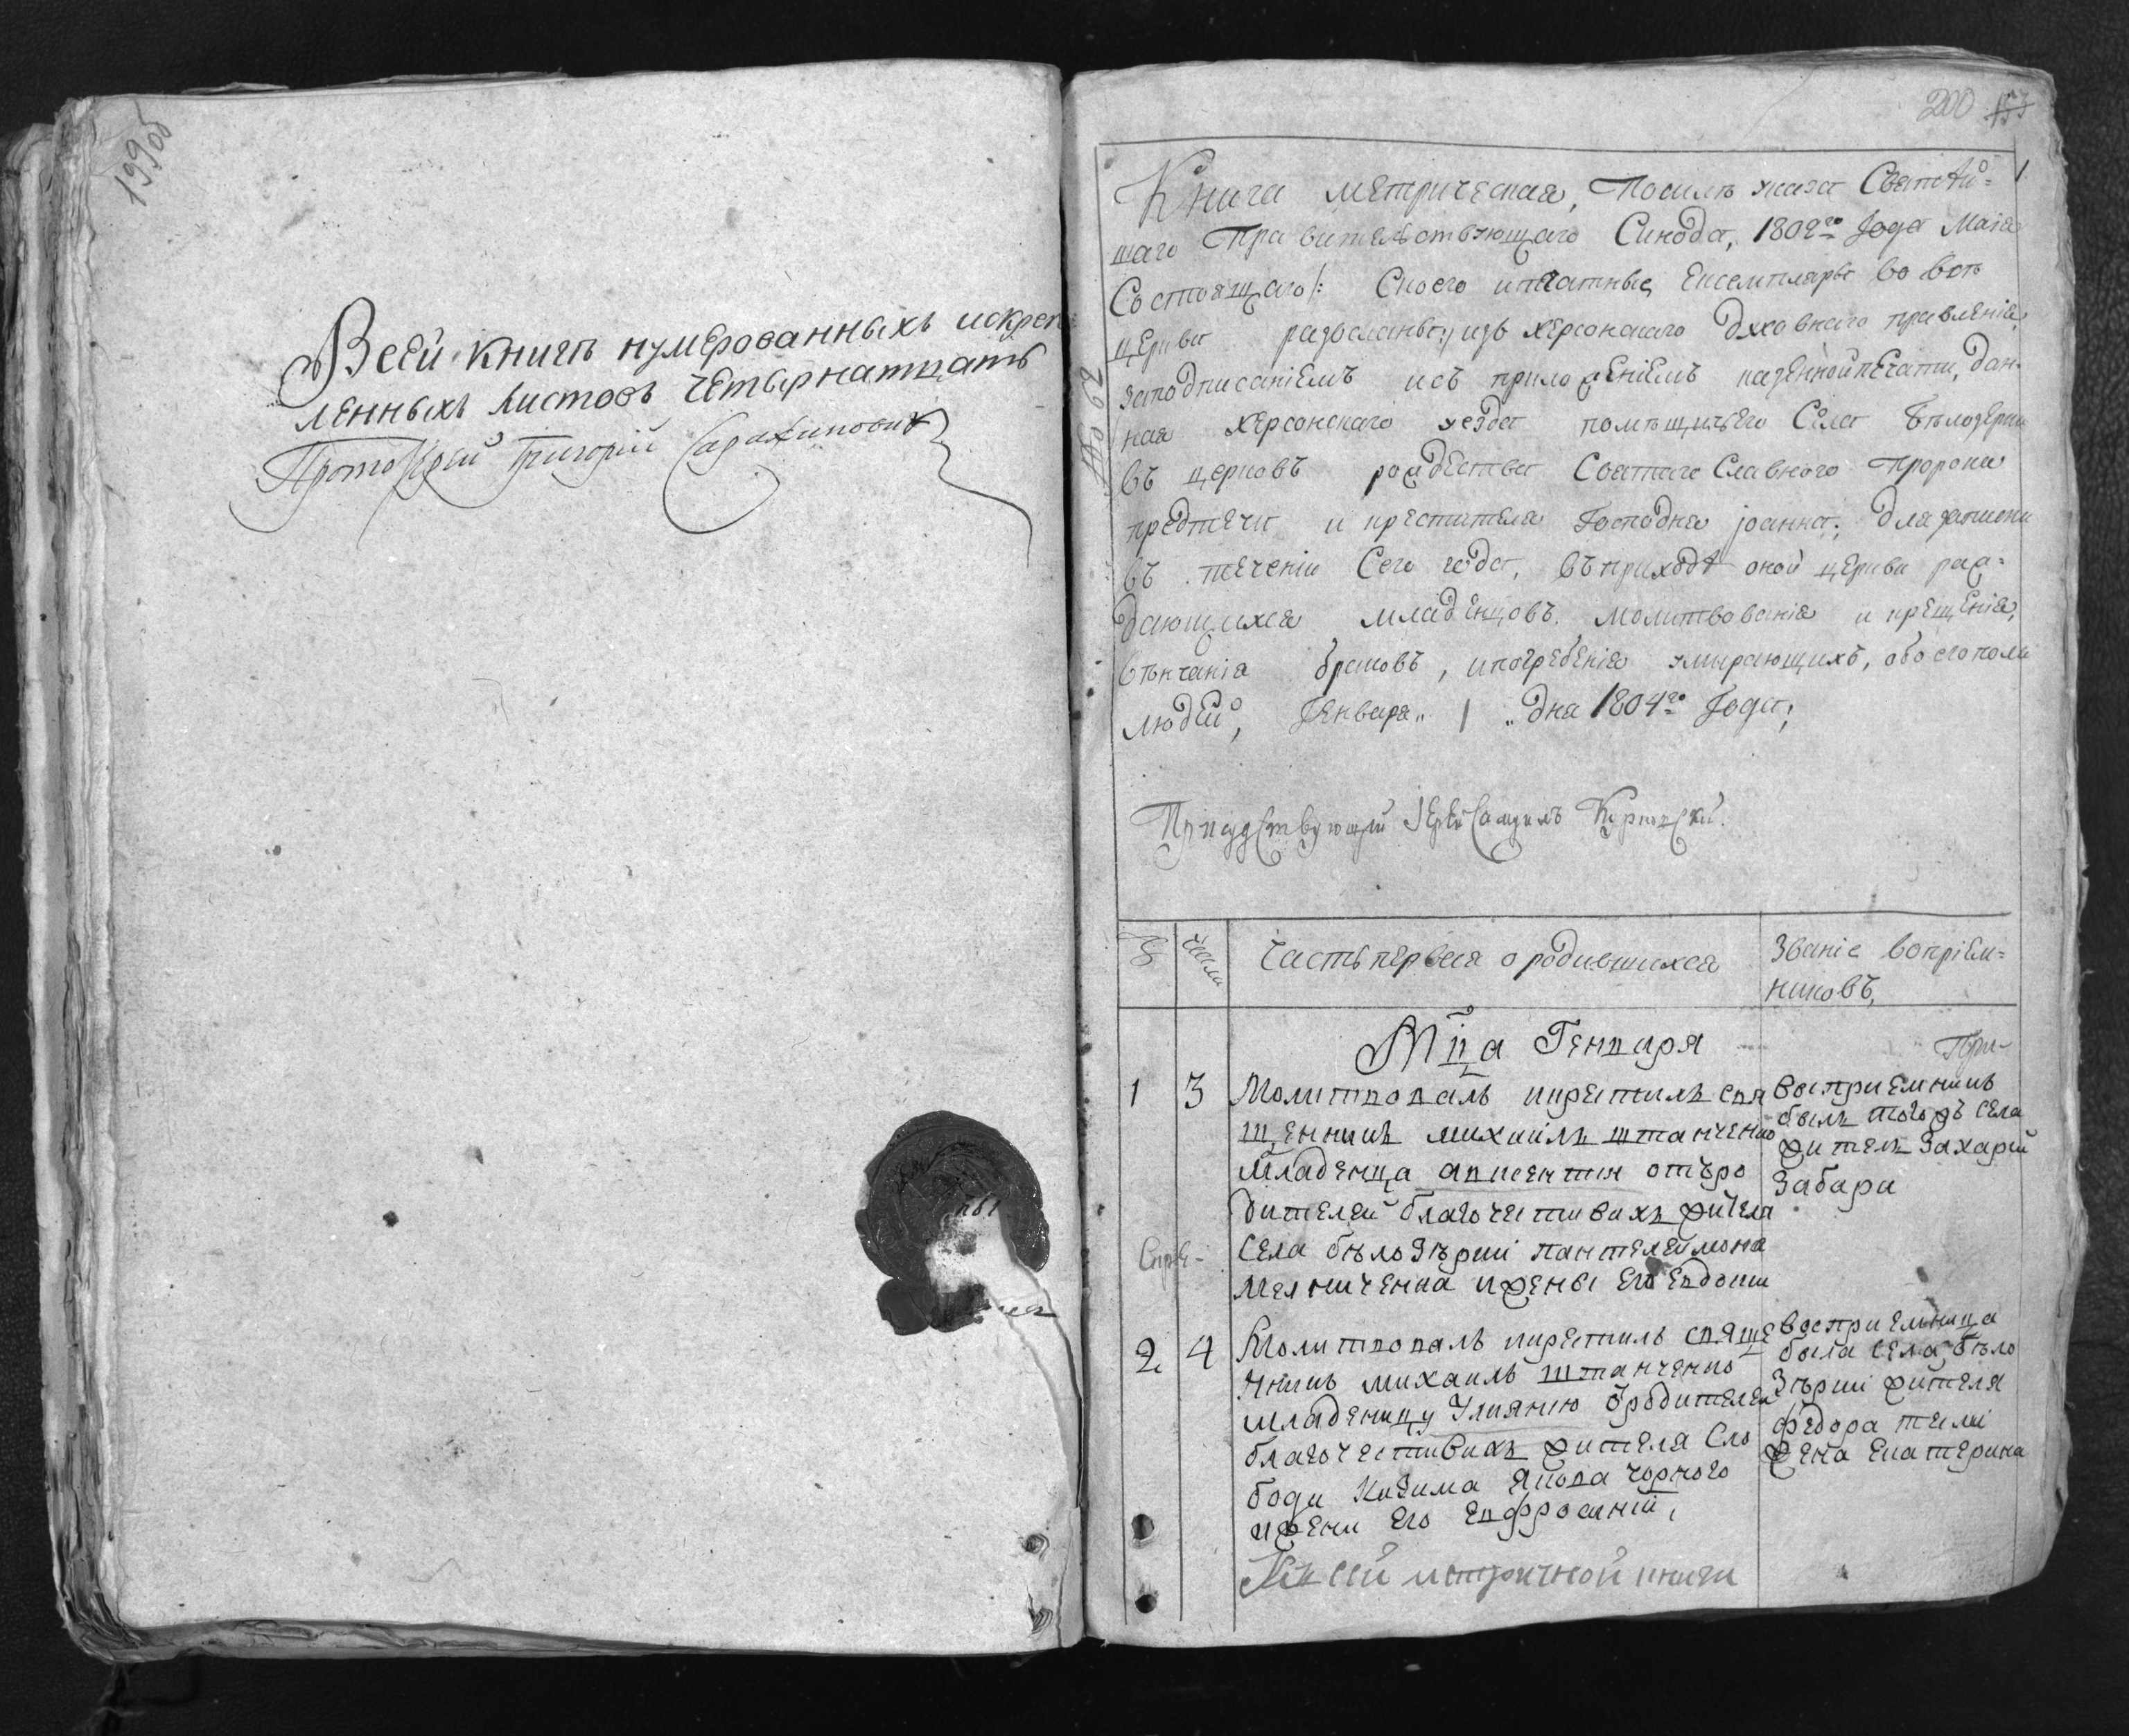 199об
Всей книгѣ нумерованныхъ искреп
ленныхъ листовъ четырнатцать
Протоіерей Григорій
200
1
Книга метрическая, Посилѣ указа Святѣй=
шаго Правителствующаго Синода, 1802го Года Маія
Состоящаго /: Съкоего ипечатные Екземпляры во всѣ
церкви разосланы:/ изъ херсонскаго Духовнаго правленія,
заподписаніемъ исъ приложеніемъ казеннойпечати, Дан-
ная херсонскаго уезда помѣщичьего Села Бѣлозерки
въ церковь рождества Святаго Славного Пророка
предтечи и крестителя Господня іоанна; Для записки
въ течении Сего года, въприходѣ оной церкви раж=
дающихся младенцовъ молитвованія и крещенія,
вѣнчанія браковъ, ипогребенія умирающихъ, обоегополи
людей, Генваря „ 1 „ дня 1804го Года;
Присудствующій Іерей Самуилъ
№ числа Часть первая о родившихся Званіе вопріем=
никовъ,
Мца Генваря
При-
1 3 Молитвовалъ икрестилъ свя
щенникъ михаилъ штанченко
Младенца авксентия отъро
дителей благочестивихъ жителя
Села бѣлозѣрки пантелеймона
мелниченка ижены его евдокии
восприемникъ
былъ тогожъ села
житель Захарий
Забара
Скрѣ-
2 4 Молитвовалъ икрестилъ свяще
нникъ михаилъ штанченко
младеницу Улиянию ѿродителей
благочестивихъ жителя Сло
боди Кизима Якова чорного
ижени его евфросинии,
восприемница
была села бѣло
зѣрки жителя
федора
жена екатерина
Къ сей метричной книги